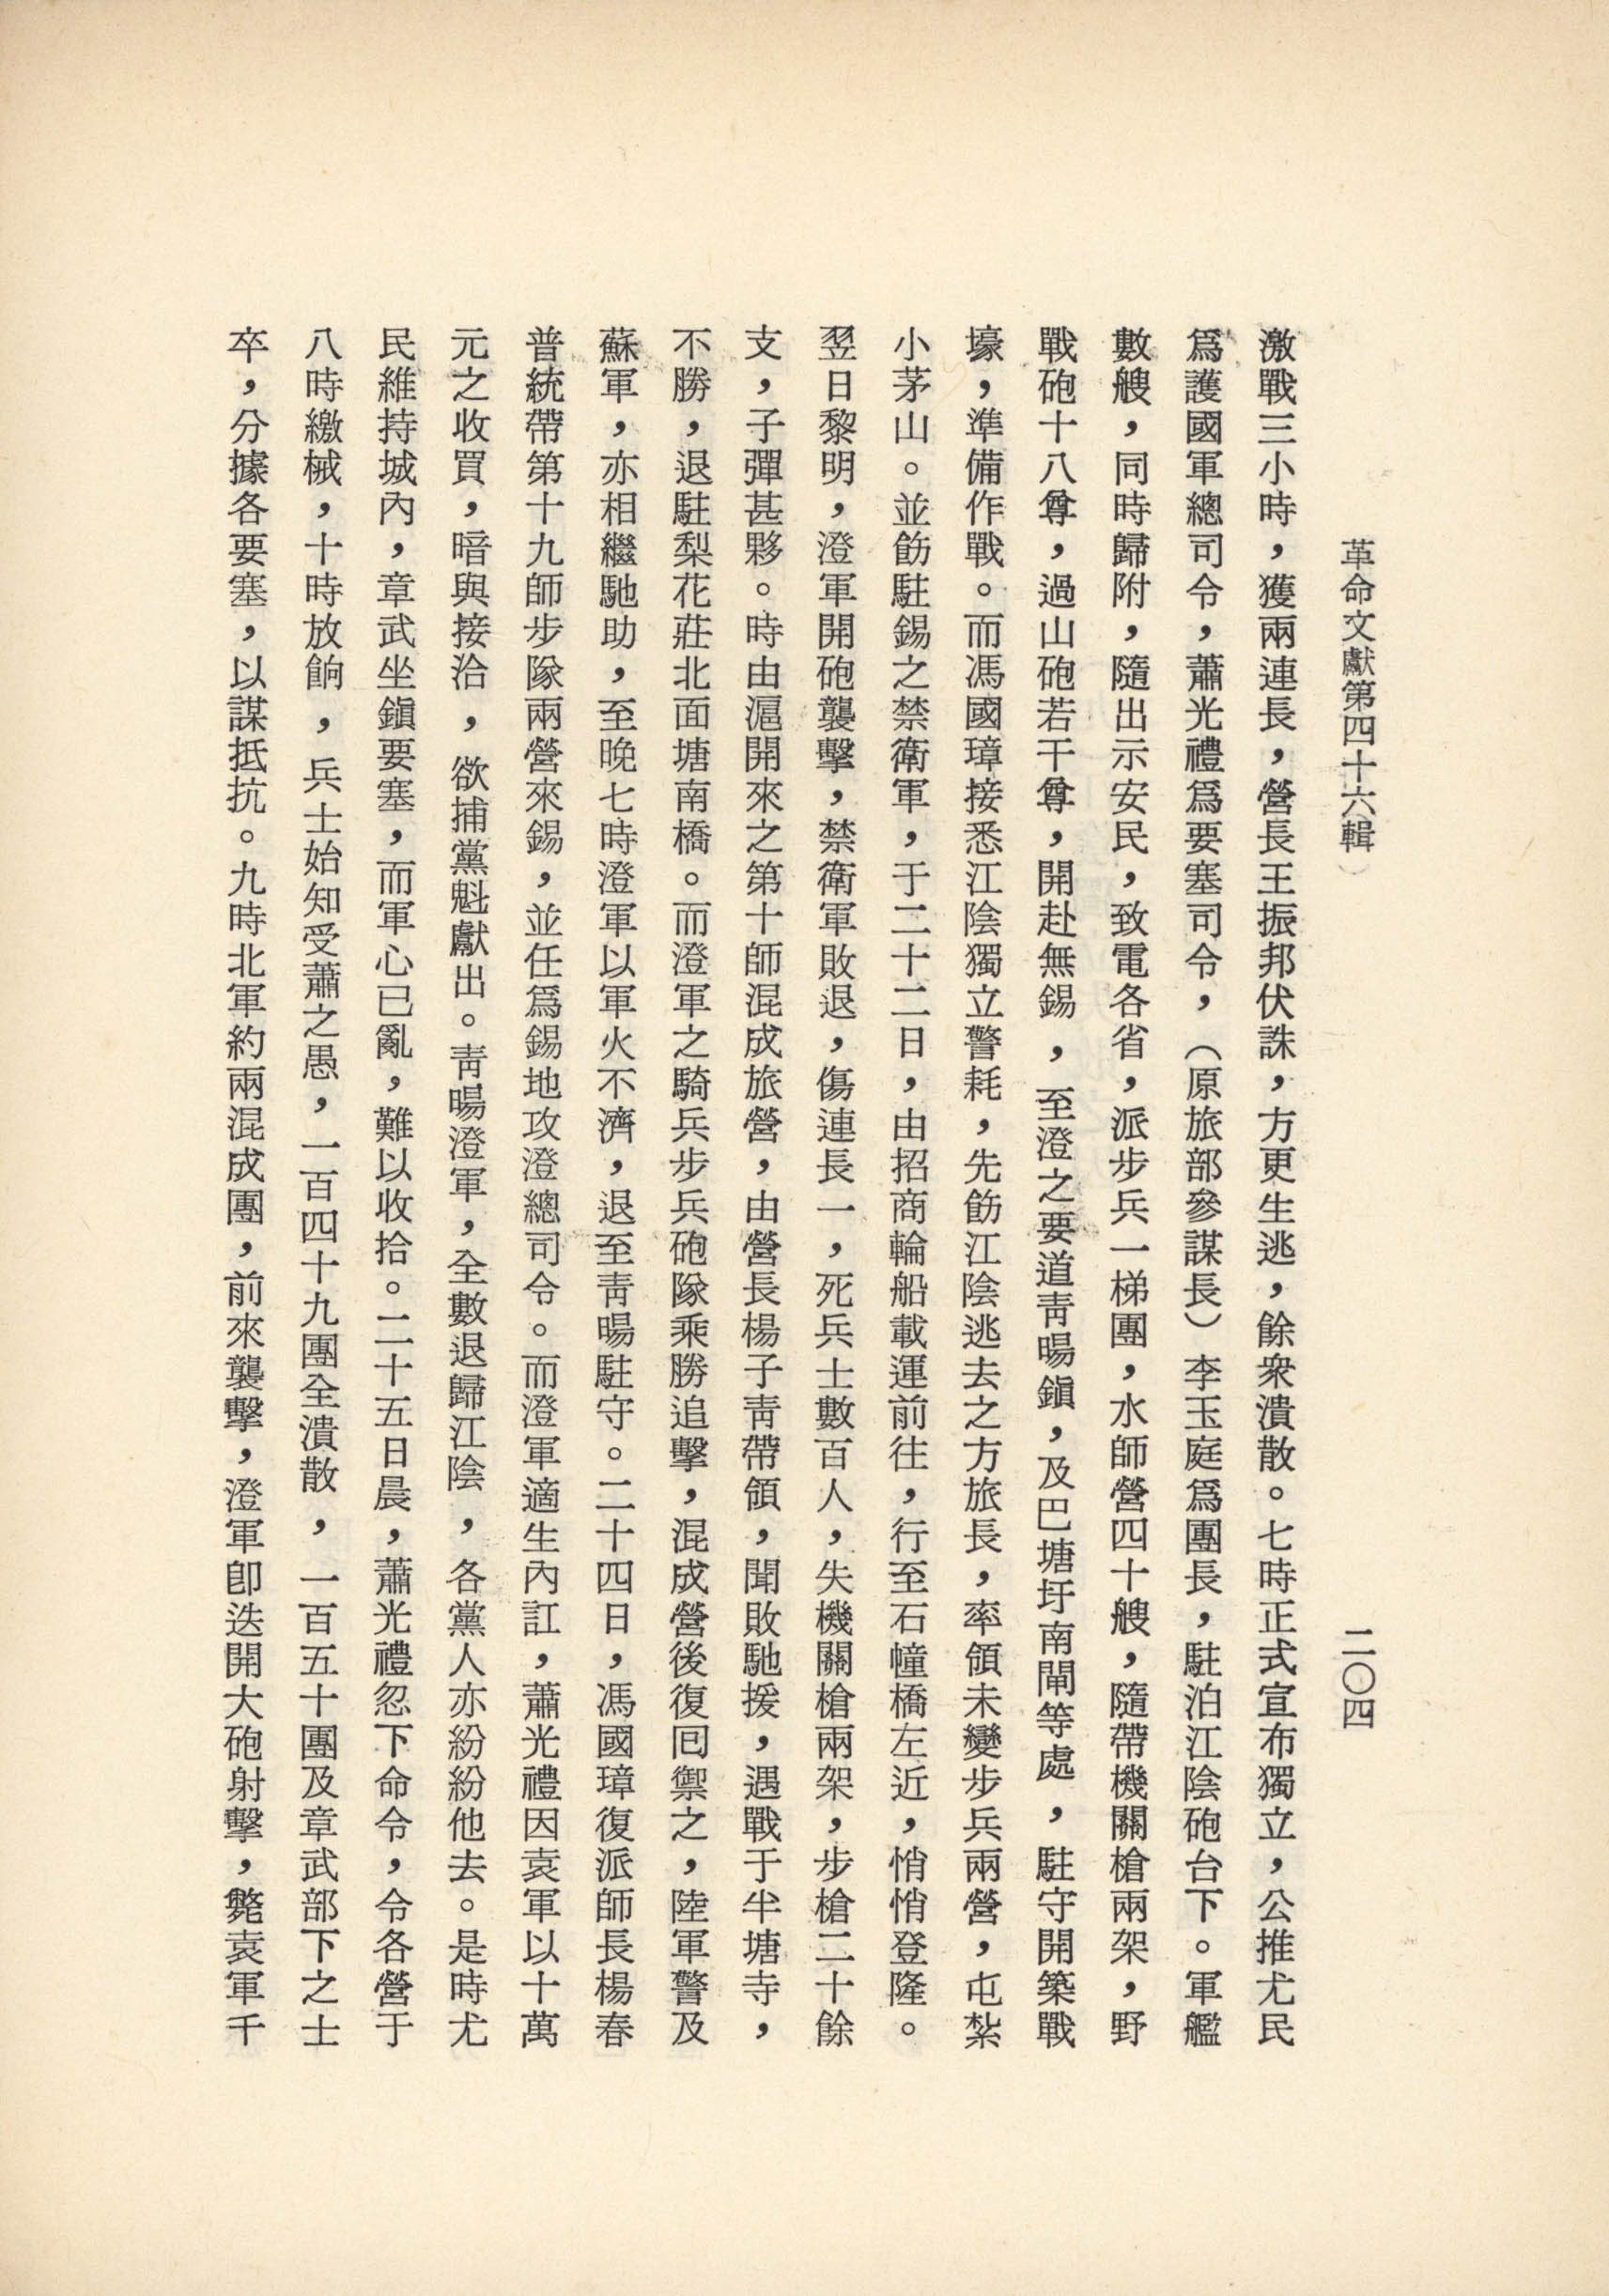 革命文獻第四十六輯
二〇四
激戰三小時，獲兩連長，營長王振邦伏誅，方更生逃，餘衆潰散。七時正式宣布獨立，公推尤民
爲護國軍總司令，蕭光禮爲要塞司令，（原旅部參謀長）李玉庭爲團長，駐泊江陰砲台下。軍艦
數艘，同時歸附，隨出示安民，致電各省，派步兵一梯團，水師營四十艘，隨帶機關槍兩架，野
戰砲十八尊，過山砲若干尊，開赴無錫，至澄之要道靑暘鎭，及巴塘圩南閘等處，駐守開築戰
壕，準備作戰。而馮國璋接悉江陰獨立警耗，先飭江陰逃去之方旅長，率領未變步兵兩營，屯紮
小茅山。並飭駐錫之禁衛軍，于二十二日，由招商輪船載運前往，行至石幢橋左近，悄悄登隆。
翌日黎明，澄軍開砲襲擊，禁衛軍敗退，傷連長一，死兵士數百人，失機關槍兩架，步槍二十餘
支，子彈甚夥。時由滬開來之第十師混成旅營，由營長楊子靑帶領，聞敗馳援，遇戰于半塘寺，
不勝，退駐梨花莊北面塘南橋。而澄軍之騎兵步兵砲隊乘勝追擊，混成營後復囘禦之，陸軍警及
蘇軍，亦相繼馳助，至晚七時澄軍以軍火不濟，退至靑暘駐守。二十四日，馮國璋復派師長楊春
普統帶第十九師步隊兩營來錫，並任爲錫地攻澄總司令。而澄軍適生內訌，蕭光禮因袁軍以十萬
元之收買，暗與接洽，欲捕黨魁獻出。靑暘澄軍，全數退歸江陰，各黨人亦紛紛他去。是時尤
民維持城內，章武坐鎭要塞，而軍心已亂，難以收拾。二十五日晨，蕭光禮忽下命令，令各營于
八時繳械，十時放餉，兵士始知受蕭之愚，一百四十九團全潰散，一百五十團及章武部下之士
卒，分據各要塞，以謀抵抗。九時北軍約兩混成團，前來襲擊，澄軍卽迭開大砲射擊，斃袁軍千